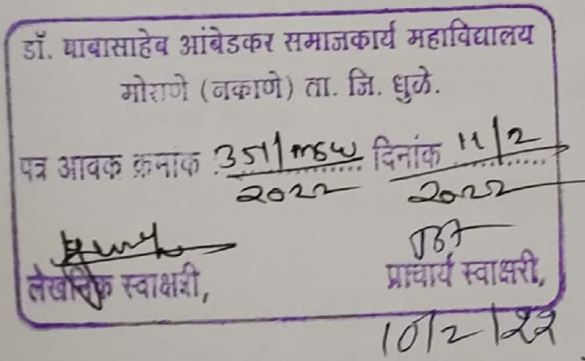 डॉ. बाबासाहेब आंबेडकर समाजकार्य महाविद्यालय
मोराणे (नकाणे) ता. जि. धुळे.
पत्र आवक क्रमांक 351/msw/2022 दिनांक 11/2/2022
लेखनिक स्वाक्षरी, प्राचार्य स्वाक्षरी,
10/2/22